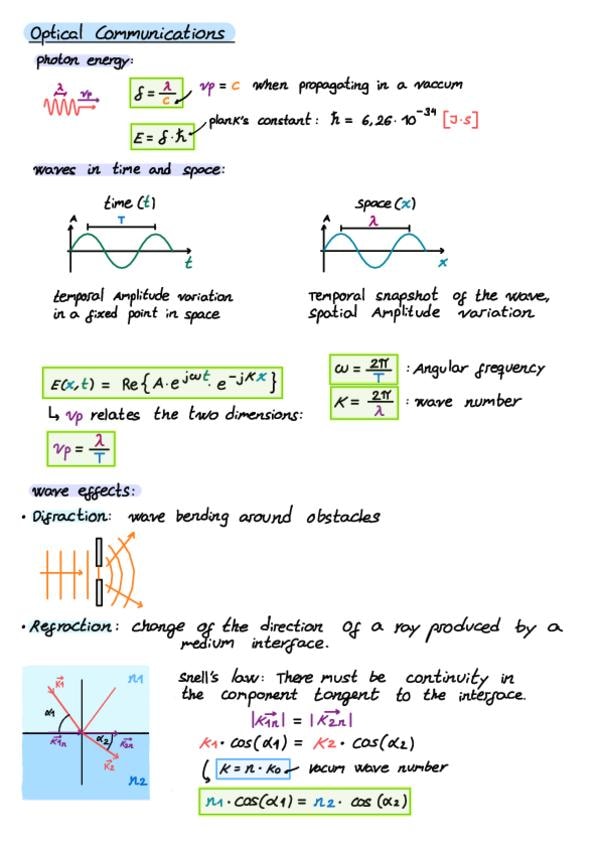 Optical Communications
photon energy:
λ vp f = λ/c vp = c when propagating in a vaccum
plank's constant: ℏ = 6,26·10⁻³⁴ [J·s]
E = f·ℏ
waves in time and space:
time (t) space (x)
A T t A λ x
temporal Amplitude variation
in a fixed point in space
Temporal snapshot of the wave,
spatial Amplitude variation
E(x,t) = Re{A·e^jωt · e^-jKx}
ω = 2π/T : Angular frequency
K = 2π/λ : wave number
↳ vp relates the two dimensions:
vp = λ/T
wave effects:
• Difraction: wave bending around obstacles
• Refraction: change of the direction of a ray produced by a
medium interface.
K1 n1
α1
K1n α2 K2n
K2
n2
Snell's law: There must be continuity in
the component tangent to the interface.
|K1n| = |K2n|
K1 · cos(α1) = K2 · cos(α2)
K = n · K0 vacum wave number
n1 · cos(α1) = n2 · cos(α2)